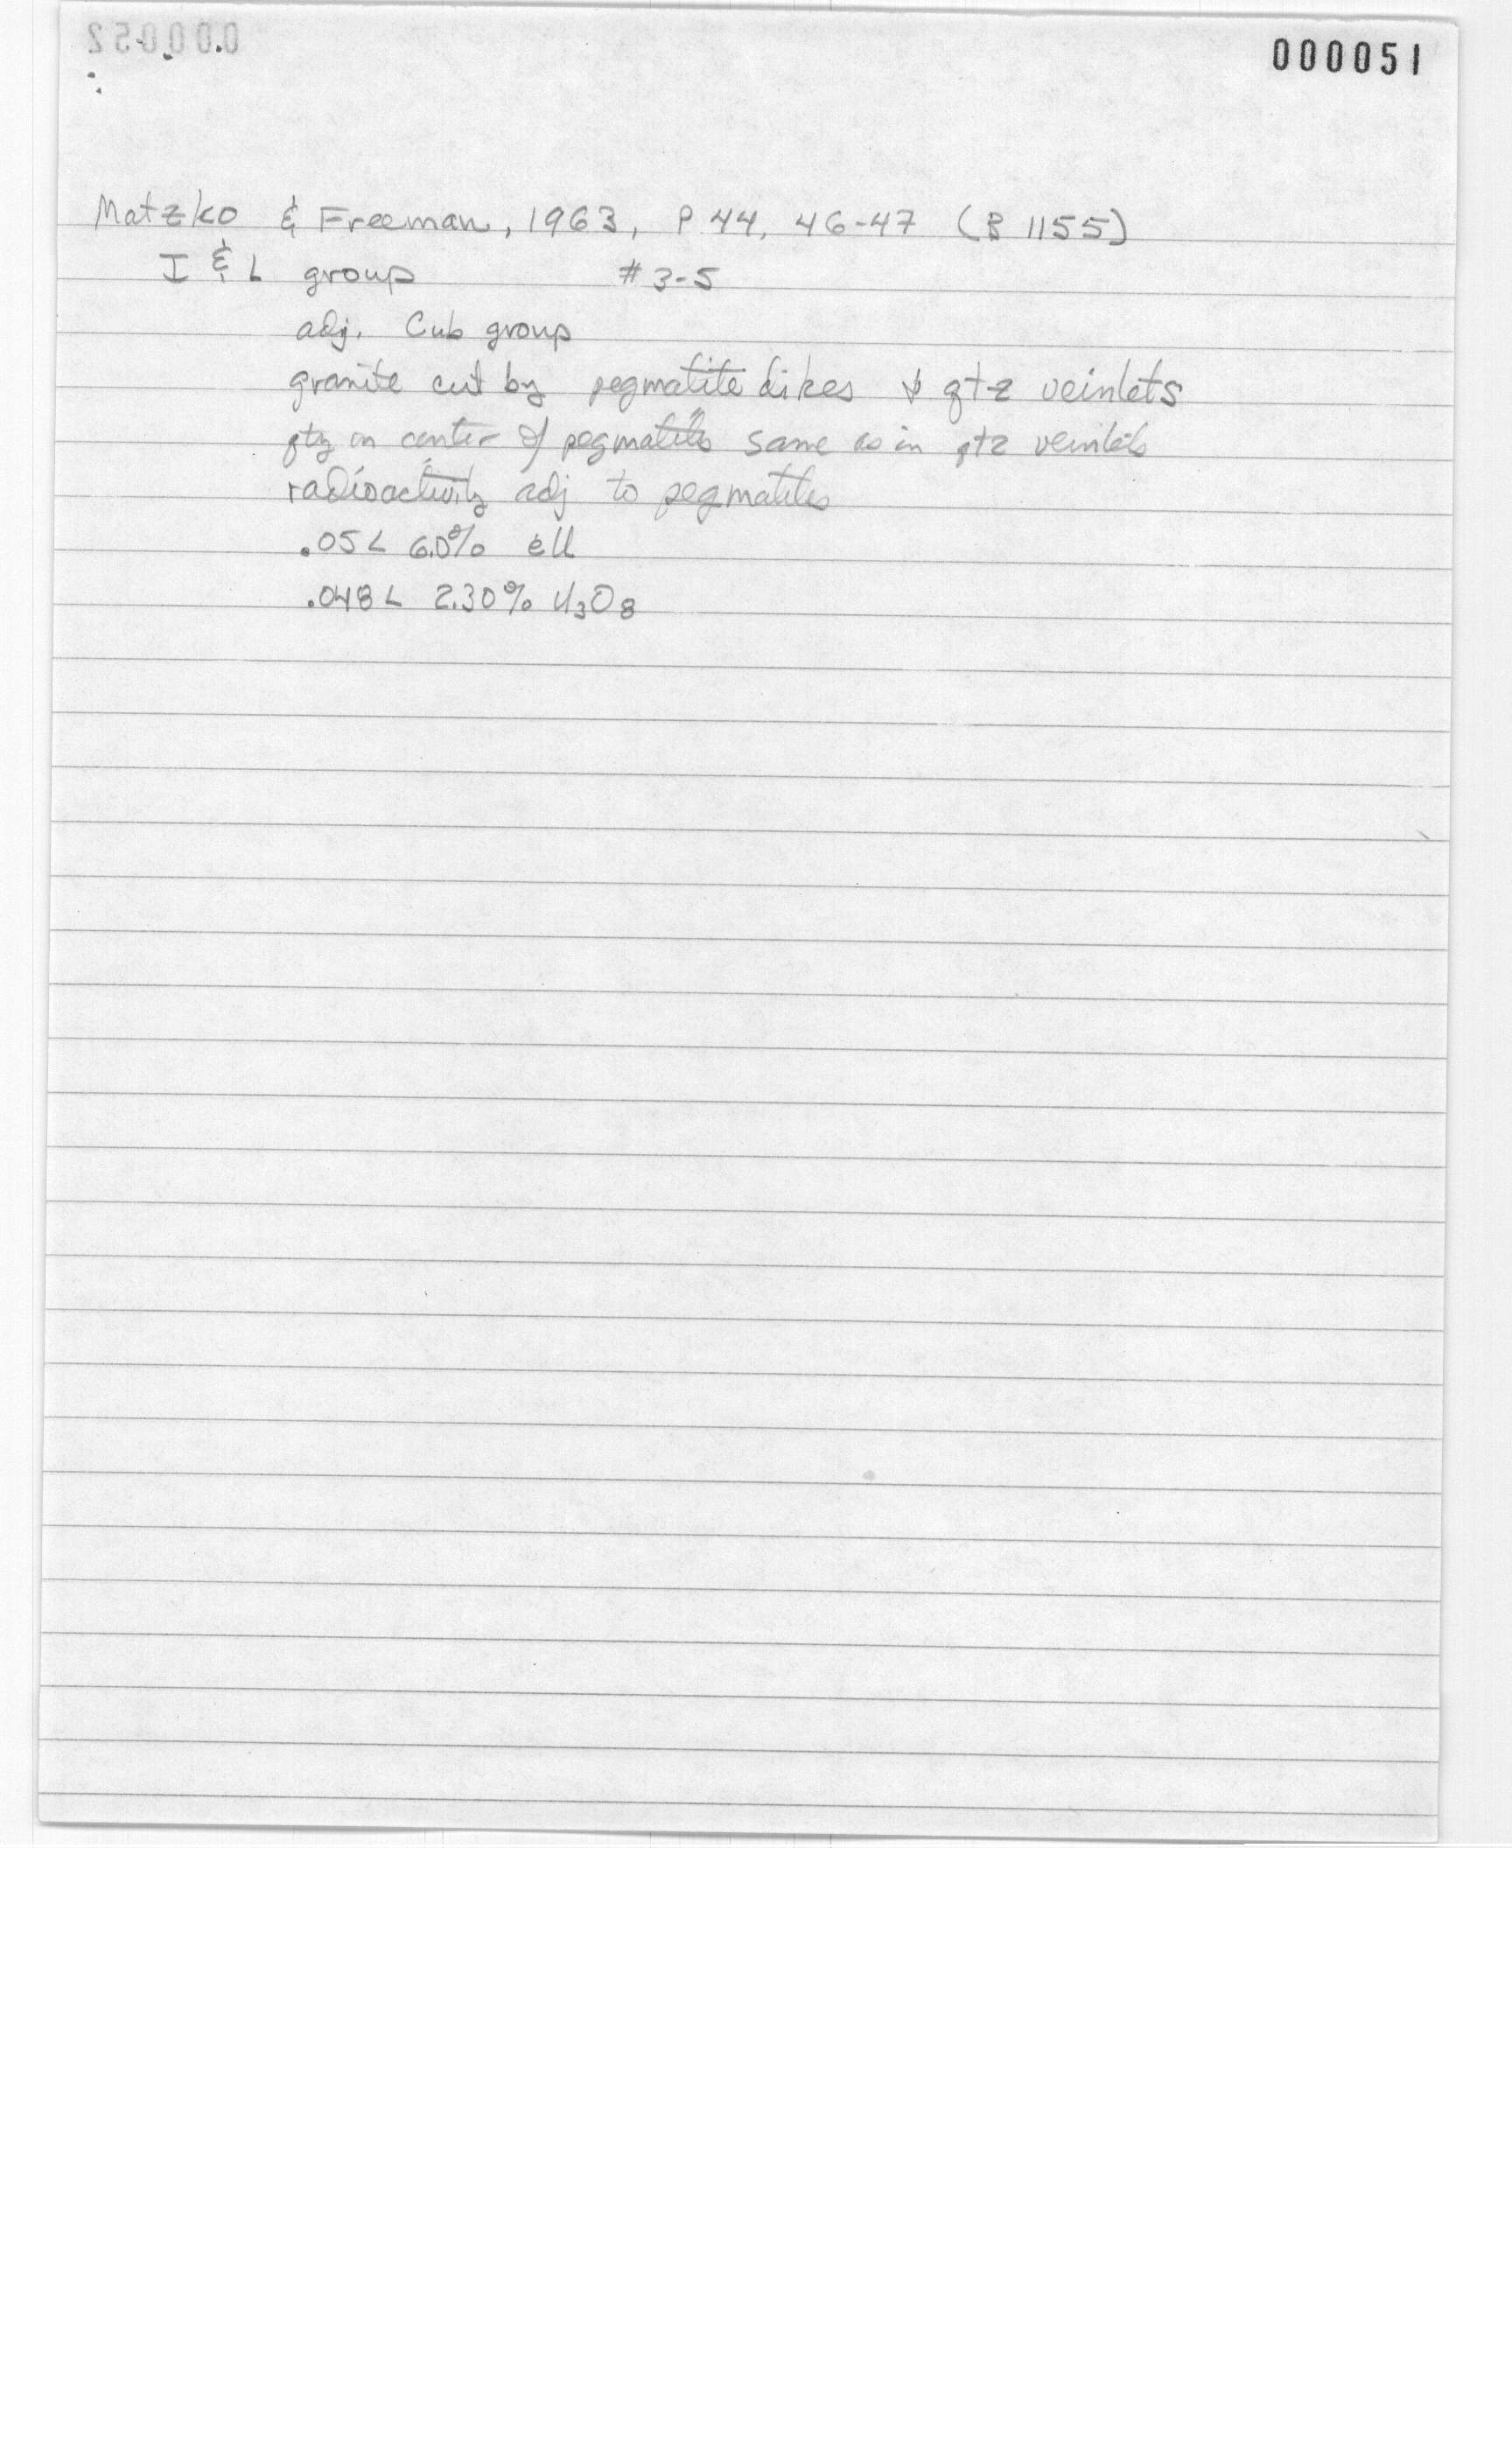 000052
000051
Matzko & Freeman, 1963, P 44, 46-47 (B 1155)
I & L group #3-5
adj. Cub group
granite cut by pegmatite dikes & qtz veinlets
qtz in center of pegmatites same as in qtz veinlets
radioactivity adj to pegmatites
.05 < 6.0% eU
.048 < 2.30% U3O8